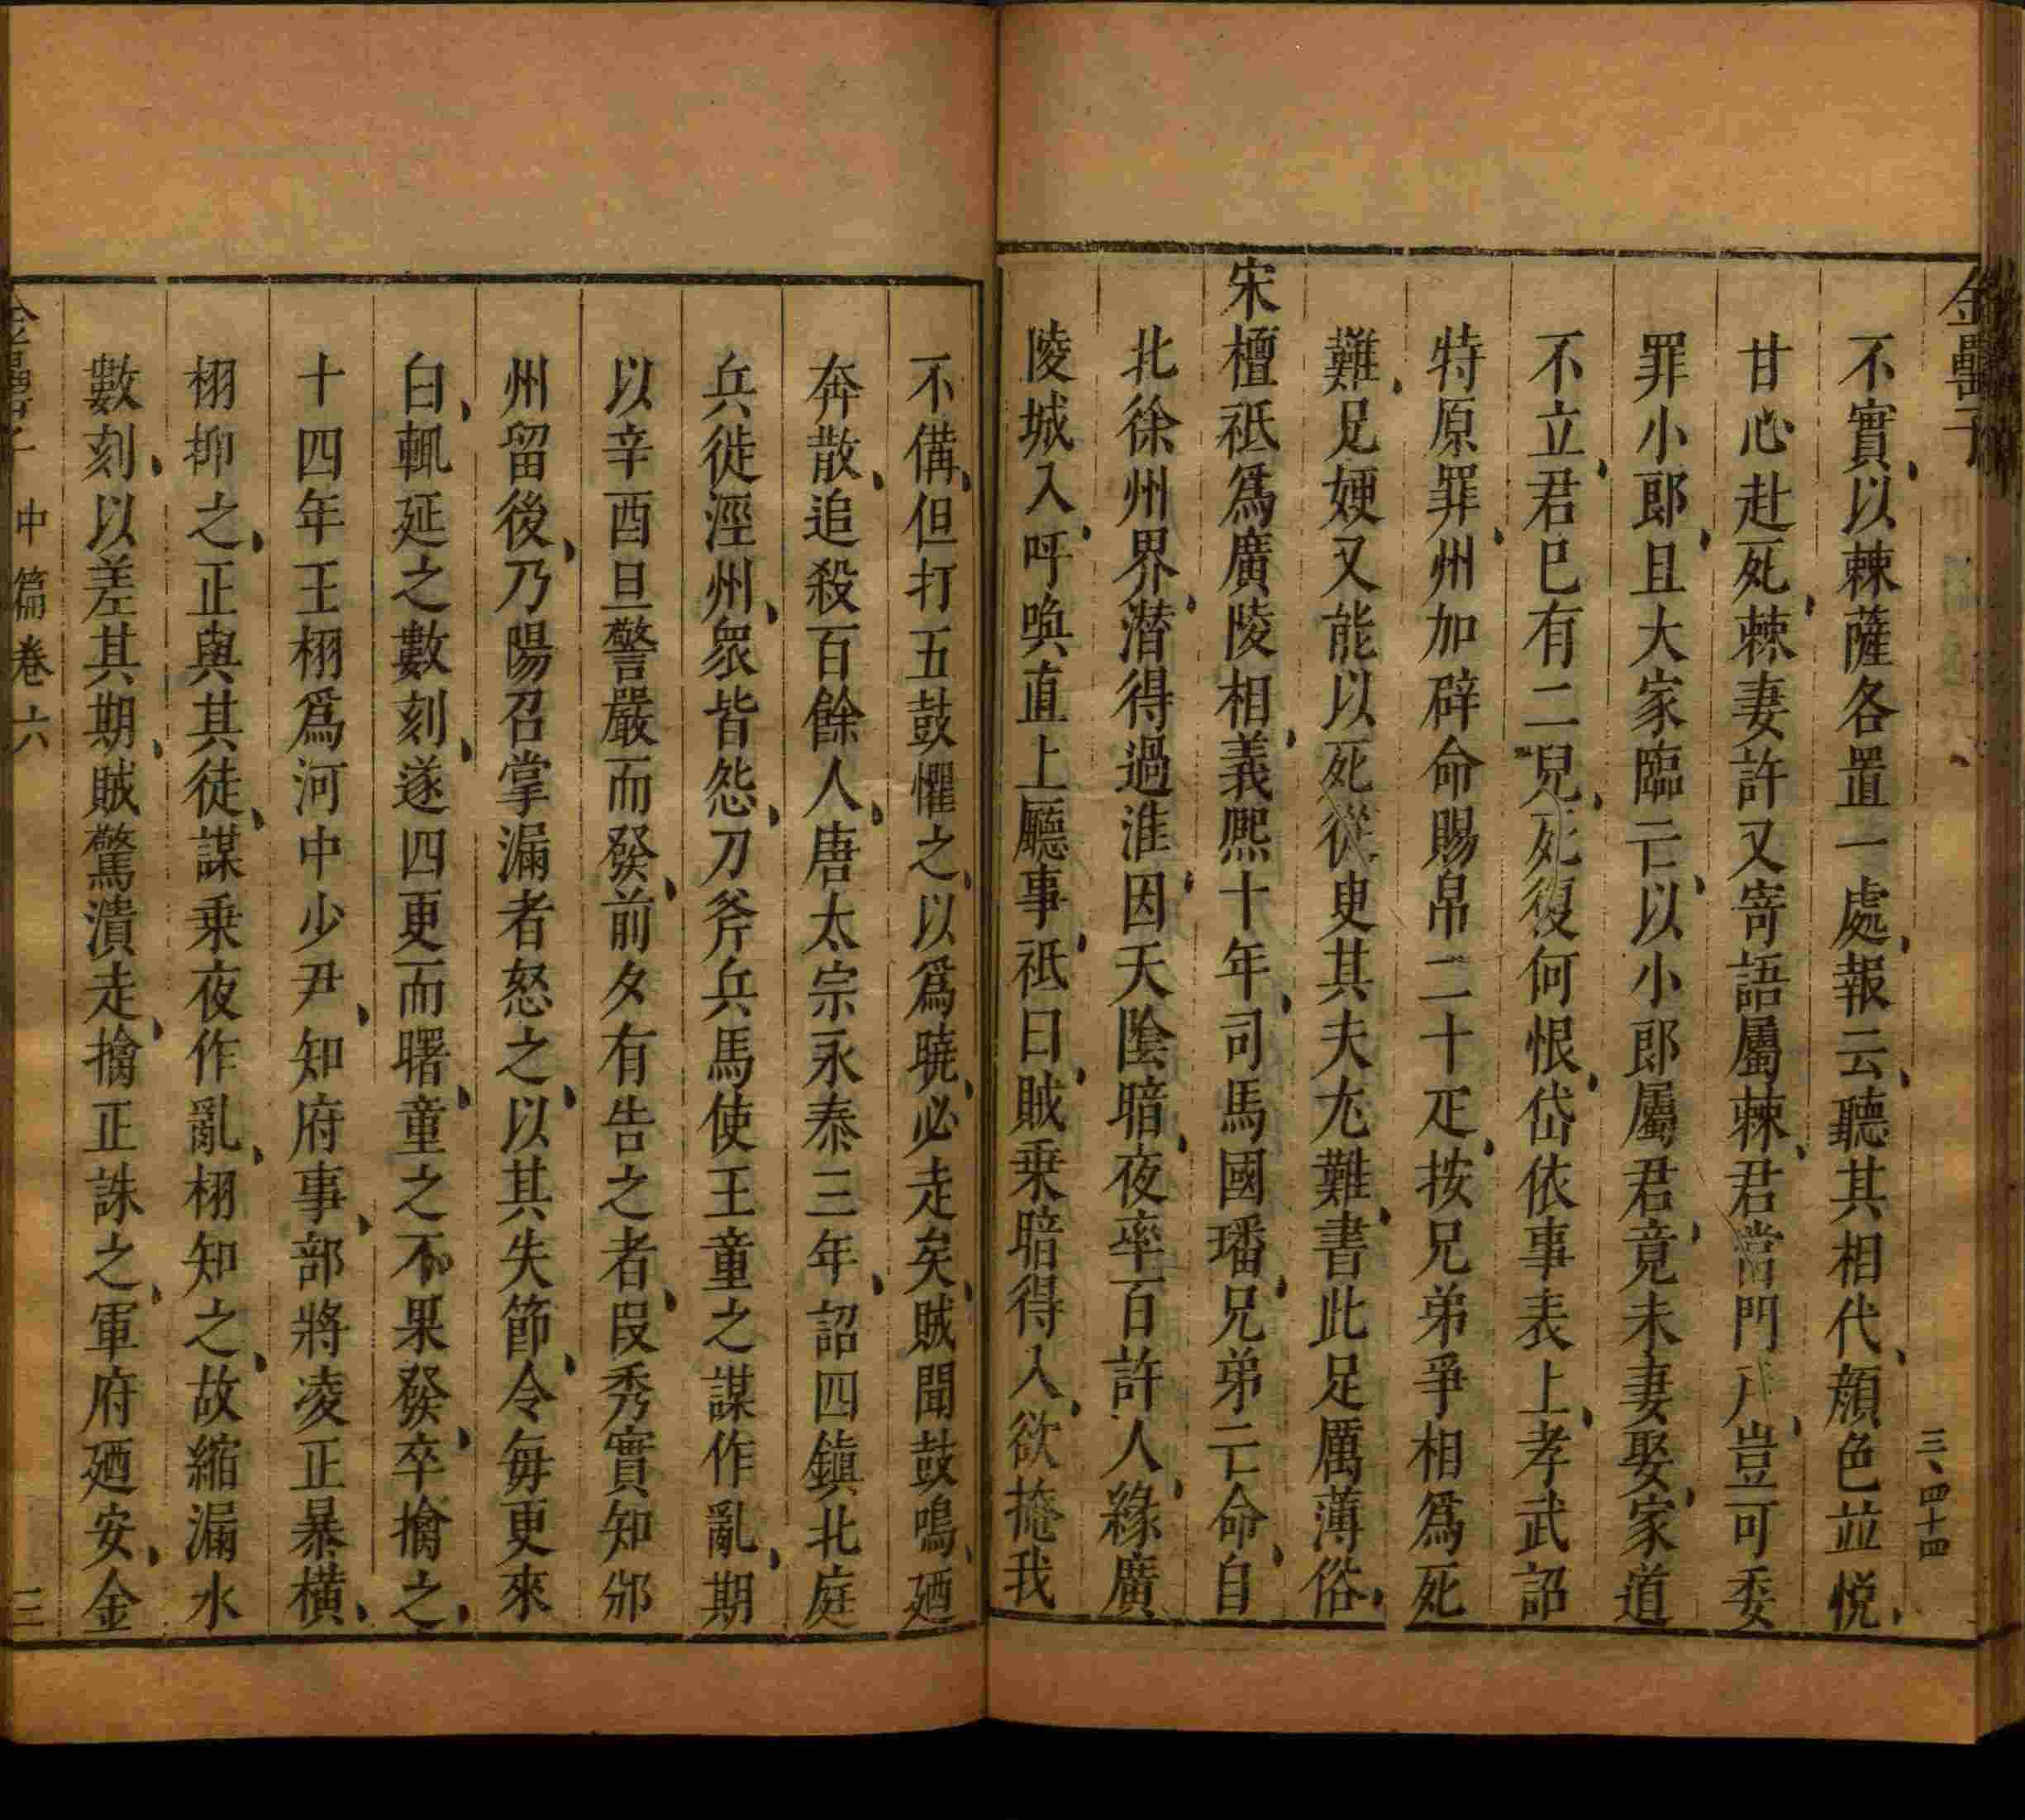 金罍子
三、四十四
不實、以棘薩各置一處、報云、聽其相代、顔色並悅、
甘心赴死、棘妻許又寄語屬棘、君當門戶、豈可委
罪小郎、且大家臨亡、以小郎屬君、竟未妻娶、家道
不立、君已有二兒、死復何恨、岱依事表上、孝武詔
特原罪、州加辟命賜帛二十疋、按兄弟爭相爲死
難、足㛐又能以死從叟其夫尤難、書此足厲薄俗、
宋檀祗爲廣陵相、義熙十年、司馬國璠、兄弟亡命、自
北徐州界、潛得過淮、因天陰暗、夜率百許人、緣廣
陵城入、呼喚直上廳事、祗曰、賊乗暗得入、欲掩我
不備、但打五鼓懼之、以爲曉、必走矣、賊聞鼓鳴、廼
奔散、追殺百餘人、唐太宗永泰三年、詔四鎮北庭
兵徙涇州、衆皆怨、刀斧兵馬使王童之謀作亂、期
以辛酉旦警嚴而發、前夕有告之者、叚秀實知邠
州留後、乃陽召掌漏者怒之、以其失節、令每更來
白、輒延之數刻、遂四更而曙、童之不果發、卒擒之、
十四年王栩爲河中少尹、知府事、部將凌正暴橫、
栩抑之、正與其徒、謀乗夜作亂、栩知之、故縮漏水
數刻、以差其期、賊驚潰走、擒正誅之、軍府廼安、金
中篇卷六
三